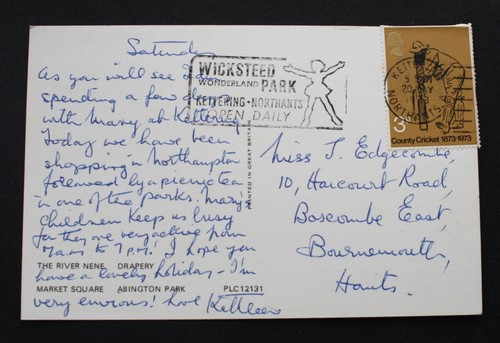 Saturday
As you will see I am
spending a few days
with Mary at Kettering.
Today we have been
shopping in Northampton
followed by a picnic tea
in one of the parks. Mary's
children keep us busy
for they are very active from
7 a.m. to 7 p.m.! I hope you
have a lovely holiday - I'm
very envious! Love Kathleen
THE RIVER NENE DRAPERY
MARKET SQUARE ABINGTON PARK
PLC12131
PRINTED IN GREAT BRITAIN
WICKSTEED
WONDERLAND PARK
KETTERING - NORTHANTS
OPEN DAILY
3P
County Cricket 1873-1973
Miss J. Edgecombe,
10, Harcourt Road,
Boscombe East,
Bournemouth,
Hants.